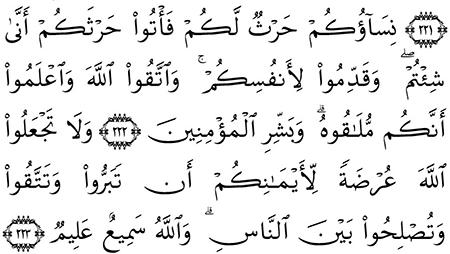 ﴿٢٢١﴾ نِسَآؤُكُمْ حَرْثٌ لَّكُمْ فَأْتُوا۟ حَرْثَكُمْ أَنَّىٰ
شِئْتُمْ ۖ وَقَدِّمُوا۟ لِأَنفُسِكُمْ ۚ وَٱتَّقُوا۟ ٱللَّهَ وَٱعْلَمُوٓا۟
أَنَّكُم مُّلَـٰقُوهُ ۗ وَبَشِّرِ ٱلْمُؤْمِنِينَ ﴿٢٢٢﴾ وَلَا تَجْعَلُوا۟
ٱللَّهَ عُرْضَةً لِّأَيْمَـٰنِكُمْ أَن تَبَرُّوا۟ وَتَتَّقُوا۟
وَتُصْلِحُوا۟ بَيْنَ ٱلنَّاسِ ۗ وَٱللَّهُ سَمِيعٌ عَلِيمٌ ﴿٢٢٣﴾